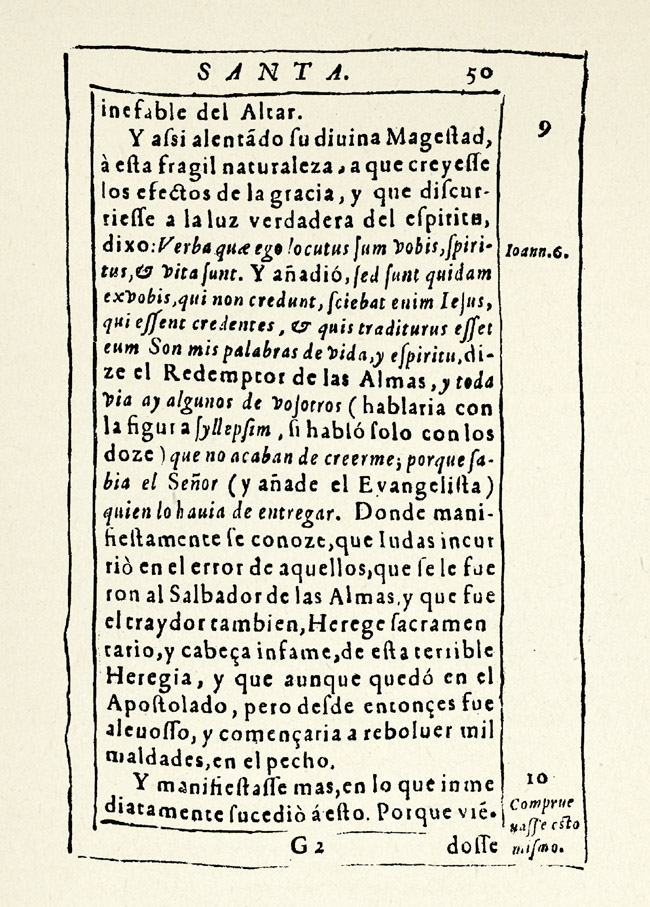 SANTA. 50
inefable del Altar.
9
Y aſsi alentãdo ſu diuina Mageſtad,
à eſta fragil naturaleza, a que creyeſſe
los efectos de la gracia, y que diſcur-
rieſſe a la luz verdadera del eſpiritu,
dixo: Verba quæ ego locutus ſum vobis, ſpiri-
Ioann. 6.
tus, & vita ſunt. Y añadió, ſed ſunt quidam
ex vobis, qui non credunt, ſciebat enim Ieſus,
qui eſſent credentes, & quis traditurus eſſet
eum Son mis palabras de vida, y eſpiritu, di-
ze el Redemptor de las Almas, y toda
via ay algunos de voſotros ( hablaria con
la figura ſyllepſim, ſi habló ſolo con los
doze ) que no acaban de creerme; porque ſa-
bia el Señor (y añade el Evangeliſta)
quien lo hauia de entregar. Donde mani-
fieſtamente ſe conoze, que Iudas incur
riò en el error de aquellos, que ſe le fue
ron al Salbador de las Almas, y que fue
el traydor tambien, Herege ſacramen
tario, y cabeça infame, de eſta terrible
Heregia, y que aunque quedó en el
Apoſtolado, pero deſde entonçes fue
aleuoſſo, y començaria a reboluer mil
maldades, en el pecho.
10
Y manifieſtaſſe mas, en lo que inme
Comprue
diatamente ſucediò á eſto. Porque vié-
uaſſe eſto
miſmo.
G 2 doſſe